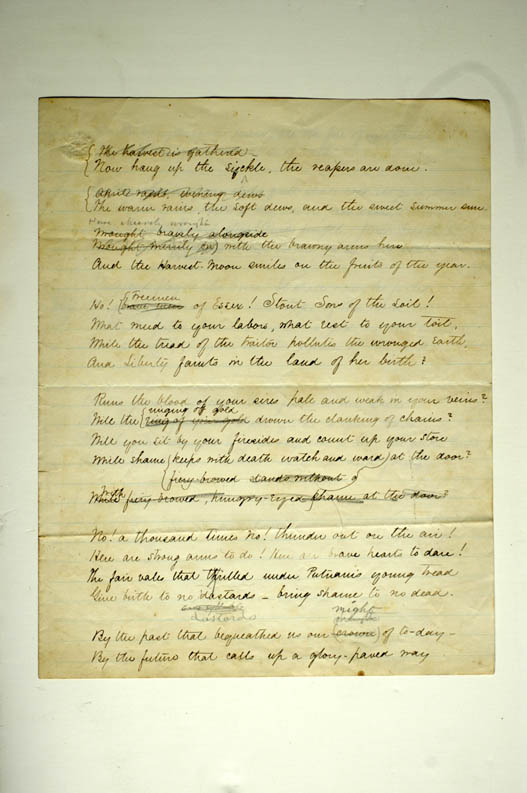 The harvest is gathered
Now hang up the sickle, the reapers are done.
April rains, evening dews
The warm rains, the soft dews, and the sweet summer sun
Have cheerily wrought
Wrought bravely alongside
Wrought merrily on with the brawny arms here
And the Harvest-Moon smiles on the fruits of the year.
Ho! freemen
of Essex! Stout Sons of the Soil!
What meed to your labors, what rest to your toil,
While the tread of the Traitor pollutes the wronged Earth,
And Liberty faints in the land of her birth?
Runs the blood of your sires pale and weak in your veins?
ringing of gold
Will the ring of your gold drown the clanking of chains?
Will you sit by your firesides and count up your store
While Shame keeps with death watch and ward at the door?
fiery browed stands without
With fiery-browed, hungry-eyed Shame at the door?
No! a thousand times No! thunder out on the air!
Here are strong arms to do! Here are brave hearts to dare!
The fair vales that thrilled under Putnam's young tread
Give birth to no dastards – bring shame to no dead.
dastards
might
By the past that bequeathed us our crown of to-day –
By the future that calls up a glory-paved way